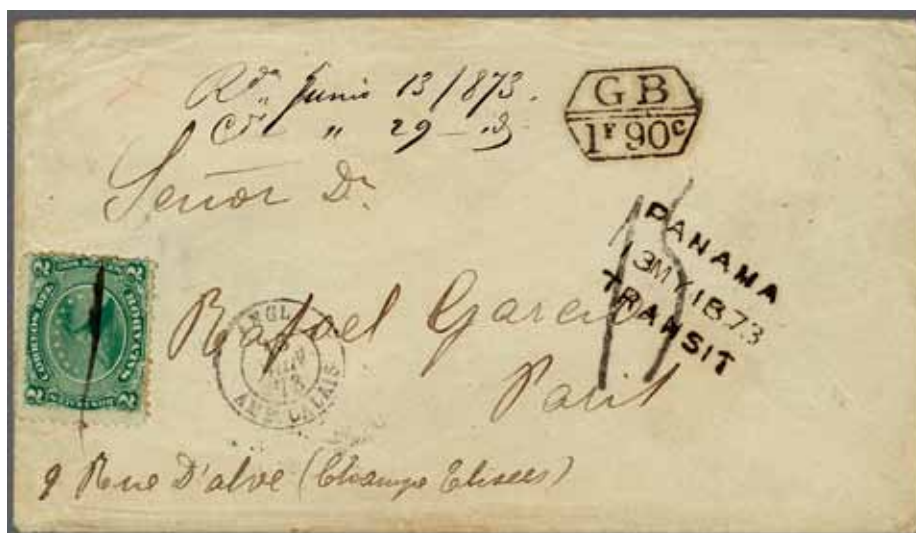 Rda Junio 13/873.
Cda " 29 —
GB
1F 90c
Señor Dr.
PANAMA
13MY1873
TRANSIT
15
Rafael Garcia
Paris
ANGL.
AMB. CALAIS
CORREOS DEL
2 2
2 2
9 Rue D'alve (Champs Elisees)